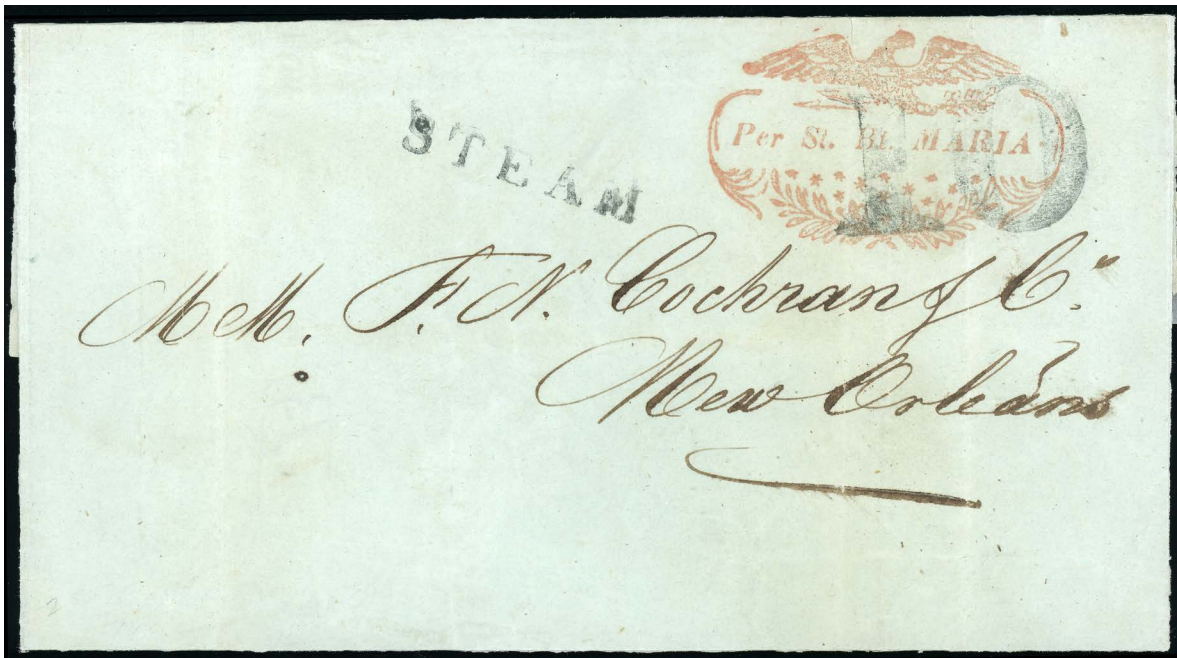 STEAM
Per St. Bt. MARIA
10
M M. F. N. Cochran & Co.
New Orleans
2